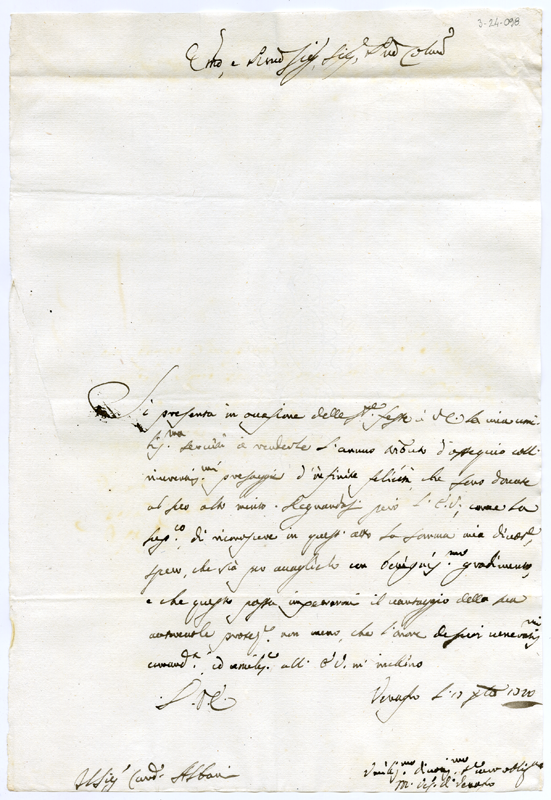 3-24-098
Em.o, e Rev.mo Sig.r, Sig.r P.ron Col.mo
Si presenta in occasione delle S.te feste à V.E. la mia umi
lis.ma servitù à renderle l'annuo tributo d'ossequio coll
riverentis.mi presaggi d'infinite felicità, che sono dovute
al suo alto merito. Degnandosi però l'E.V., come la
sup.co, di riconoscere in quest'atto la somma mia divoz.e,
spero, che sia per accoglierlo con benignis.mo gradimento,
e che questo possa impetrarmi il vantaggio della sua
autorevole protez.e non meno, che l'onore de suoi veneratis.mi
comand.i, ed umilis.e all'E.V. m'inchino
D.V.E.
Venafro li 12 Xbre 1720
Sig.r Card. Albani
Umilis.mo divotis.mo Servo obblig.mo